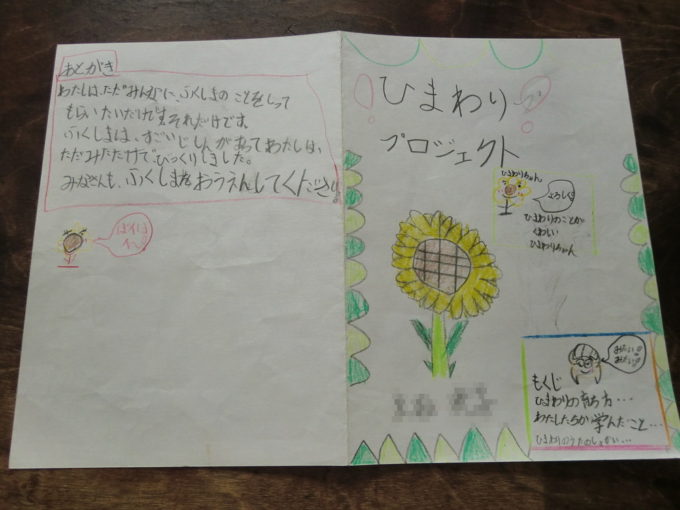 あとがき
わたしは、ただみんなに、ふくしまのことをしって
もらいたいだけです。それだけです。
ふくしまは、すごいじしんがあってわたしは、
ただみただけでびっくりしました。
みなさんも、ふくしまをおうえんしてください
ばいば
イ〜
ひまわり
プロジェクト
ひまわりちゃん
よろしく
ひまわりのことが
くわしい
ひまわりちゃん
みたい!!
みたい!!
もくじ
ひまわりの育ち方…
わたしたちが学んだこと…
ひまわりのうたのしょうかい…